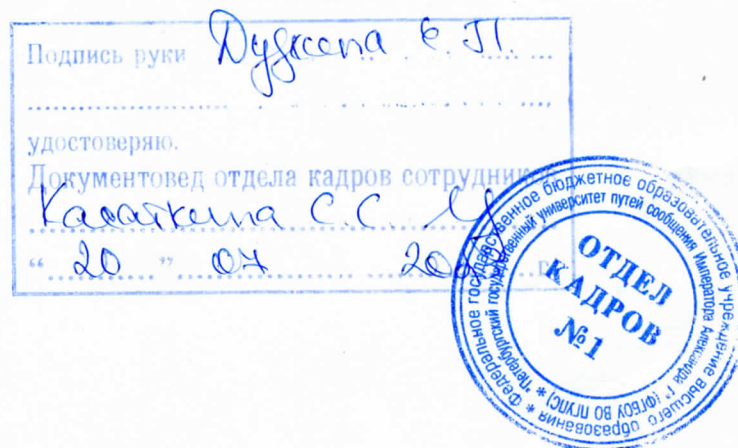 Подпись руки Дудкина Е.П.
удостоверяю.
Документовед отдела кадров сотрудников
Касаткина С.С.
“ 20 ” 07
Федеральное государственное бюджетное образовательное учреждение высшего образования *
"Петербургский государственный университет путей сообщения Императора Александра I" (ФГБОУ ВО ПГУПС) *
ОТДЕЛ
КАДРОВ
№1